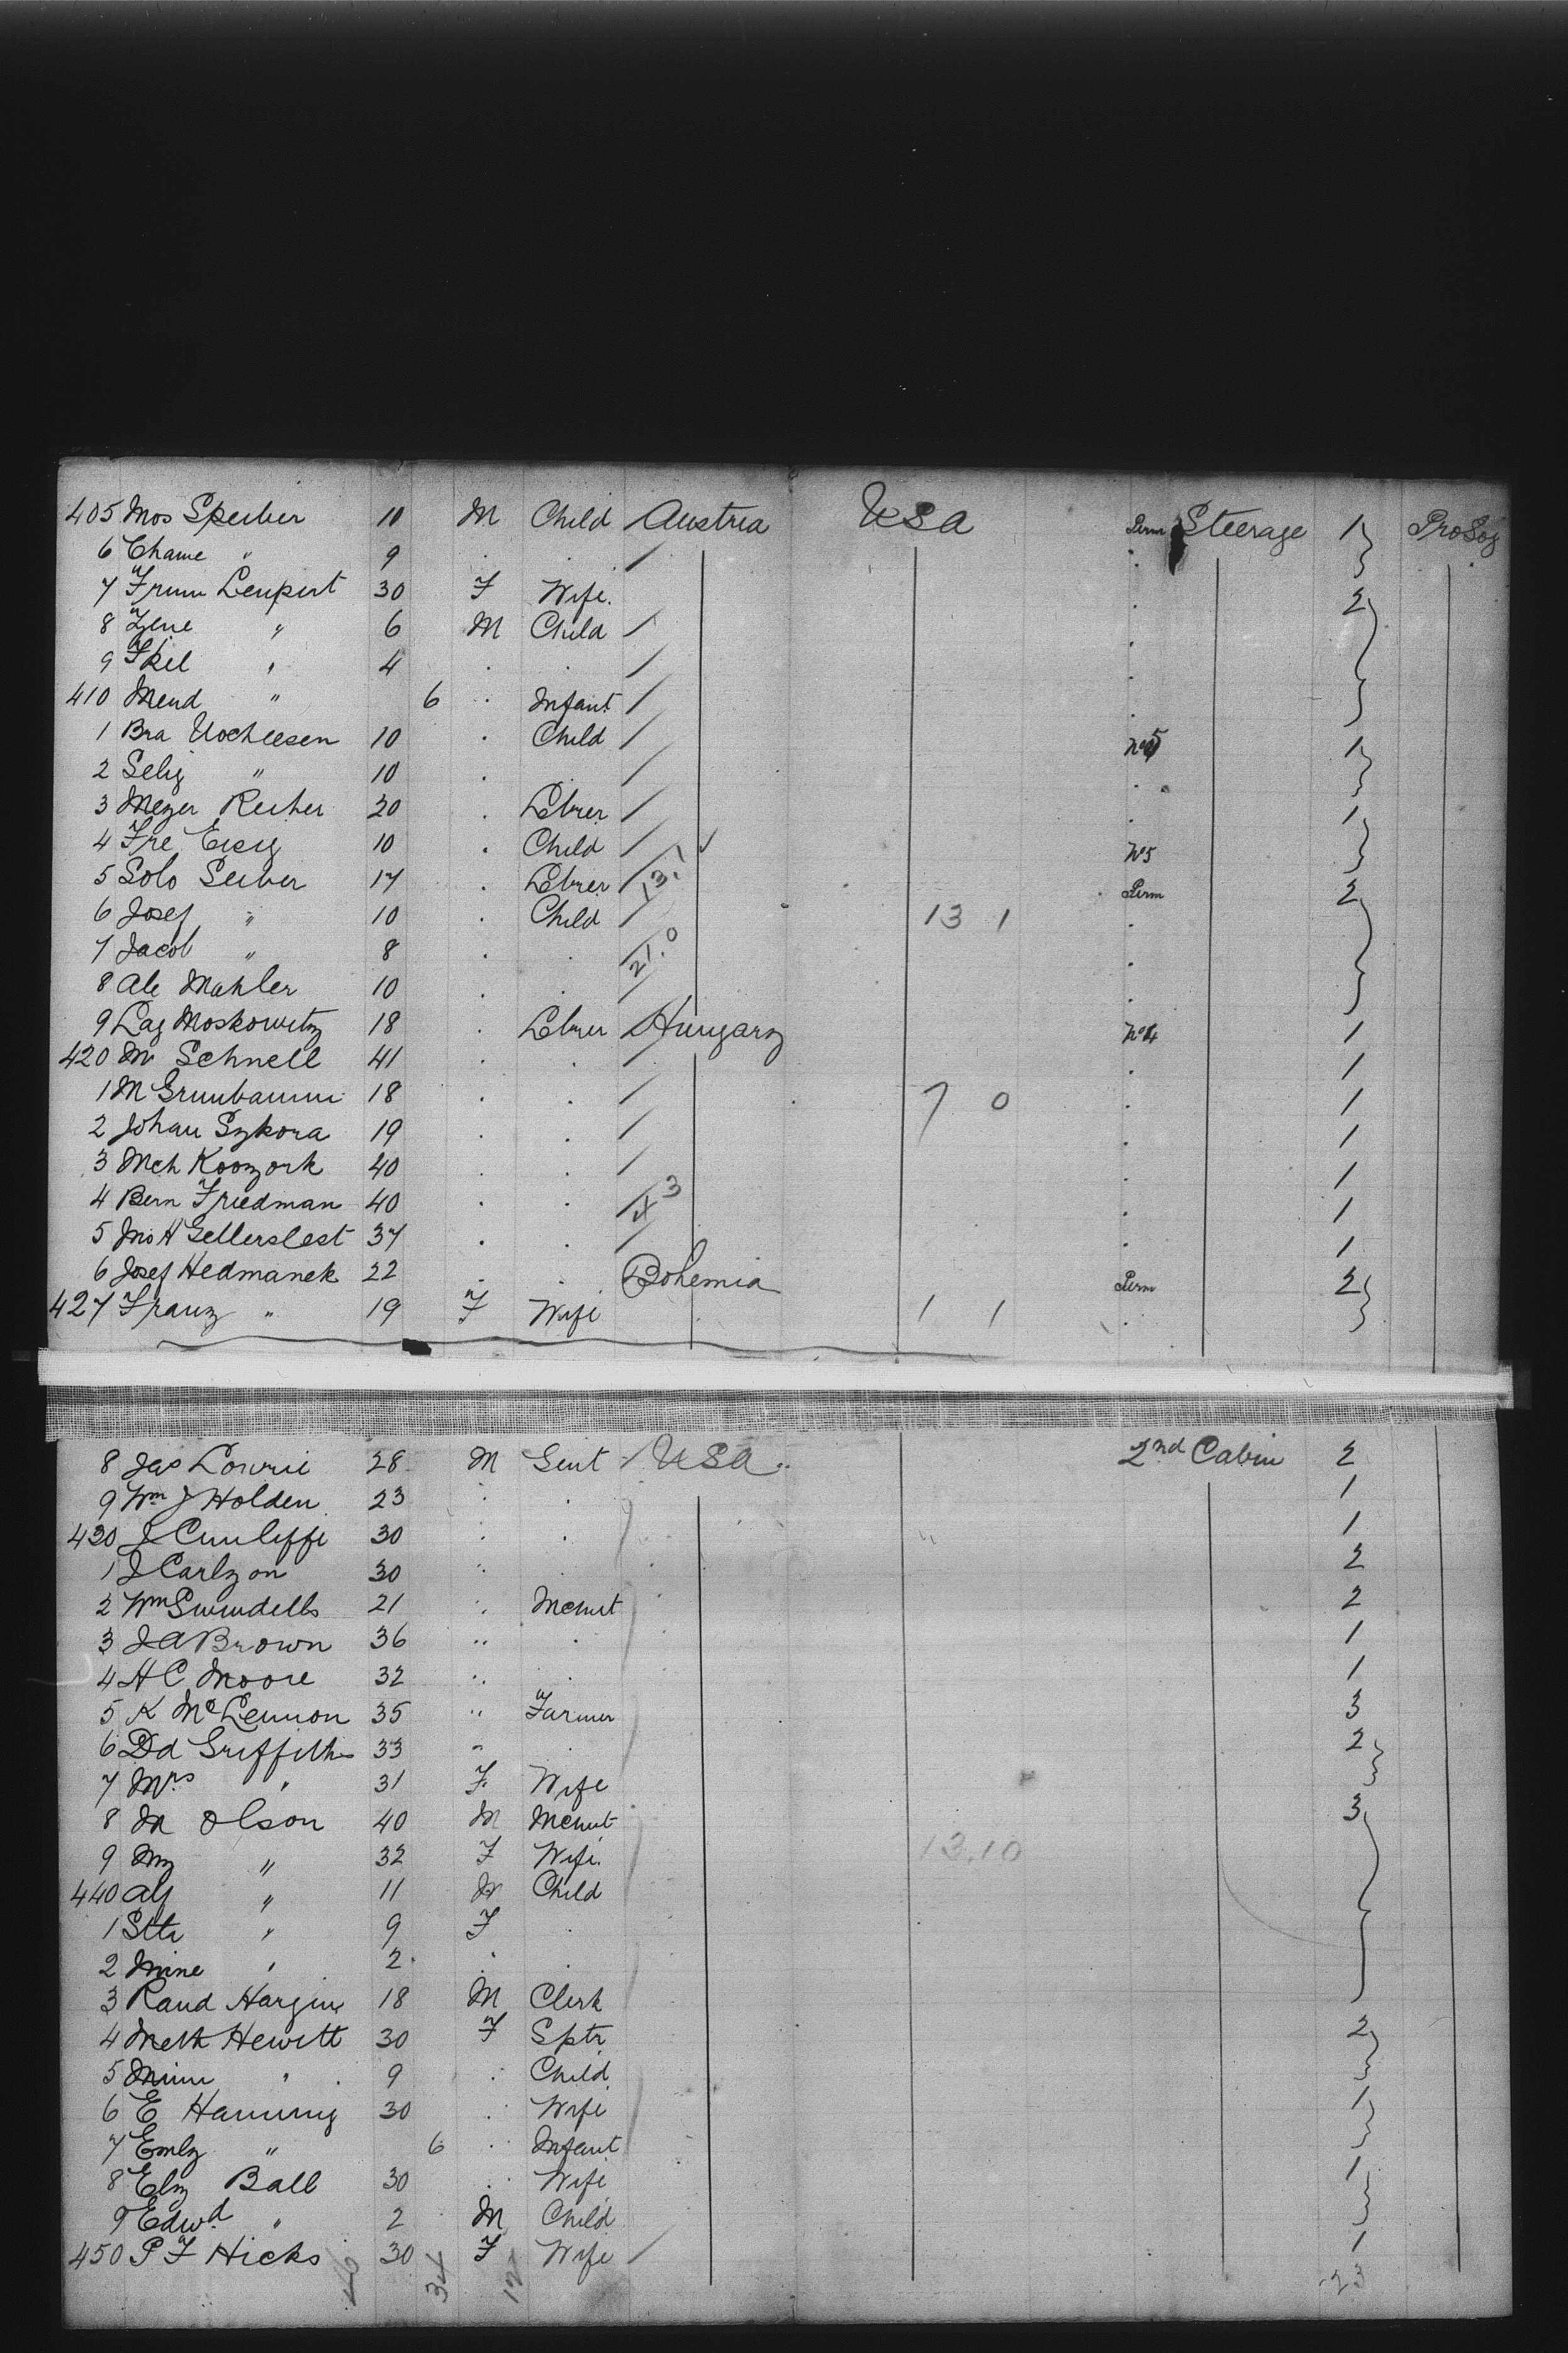 405 Mos Sperber 10 M Child Austria USA Perm Steerage 1 Pro Soy
6 Chame " 9 . . /
7 Frum Leupert 30 F Wife . 2
8 Zene " 6 M Child / .
9 Ikel " 4 . . / .
410 Mend " 6 . Infant / .
1 Bra Uocheesen 10 . Child / No 5 1
2 Selig " 10 . . / .
3 Mezer Recher 20 . Lebrer / . 1
4 Fre Eisig 10 . Child / No 5
5 Solo Seiber 17 . Lebrer / 13.1 Perm 2
6 Josef " 10 . Child / 13 1 .
7 Jacob " 8 . . / 21.0 .
8 Abe Mahler 10 . . / .
9 Laz Moskowitz 18 . Lebrer Hungary No 4 1
420 M Schnell 41 . . / . 1
1 M Grunbaum 18 . . / 7 0 . 1
2 Johan Szkora 19 . . / . 1
3 Mch Koozork 40 . . / . 1
4 Bern Friedman 40 . . / 4 3 . 1
5 Jno H Gellerslest 37 . . / . 1
6 Josef Hedmanek 22 . . Bohemia Perm 2
427 Franz " 19 F Wife 1 1 .
8 Jas Lowrie 28 M Gent / USA 2nd Cabin 2
9 Wm J Holden 23 " . 1
430 J Cunliffe 30 " . 1
1 J Carlzon 30 " 2
2 Wm Swindells 21 " Mcnut 2
3 J A Brown 36 " . 1
4 H C Moore 32 " . 1
5 K McLennon 35 " Farmer 3
6 Dd Griffiths 33 " . 2
7 Mrs " 31 F Wife
8 M Olson 40 M Mcnut 3
9 My " 32 F Wife 13.10
440 Alf " 11 M Child
1 Stta " 9 F .
2 Mine " 2 . .
3 Rand Hargin 18 M Clerk
4 Meth Hewitt 30 F Sptr 2
5 Minn " 9 . Child
6 E Hanning 30 . Wife 1
7 Emly " 6 . Infant
8 Eliz Ball 30 . Wife 1
9 Edwd " 2 M Child
450 P F Hicks 30 F Wife / 1
46 34 12 23